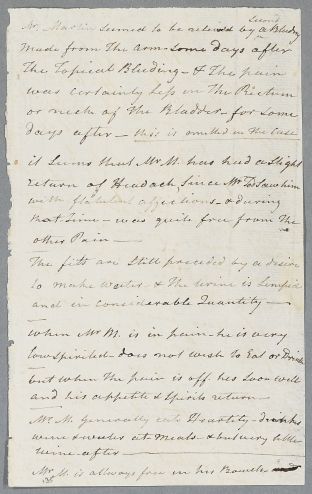 Mr. Martin seemed to be relieved by a second Bleeding
made from the arm some days after
The Topical Bleeding - & The pain
was certainly less on The Rectum
or neck of the Bladder - for some
days after - this is omitted in the Case
it seems that Mr. M. has had a slight
return of Headach, since Mr saw him
with flatulent affections - & during
that time - was quite free from The
other Pain -
The fits are Still preceded by a desire
to make water & The urine is Limpid
and in Considerable Quantity -
when Mr M. is in pain he is very
low spirited - does not wish to Eat or Drink
but when The pain is off he's Soon well
and his appetite & Spirits return -
Mr. M. Generally eats Heartily - drinks
wine & water at Meals - & but very little
wine after -
Mr. M. is allways free in his Bowels